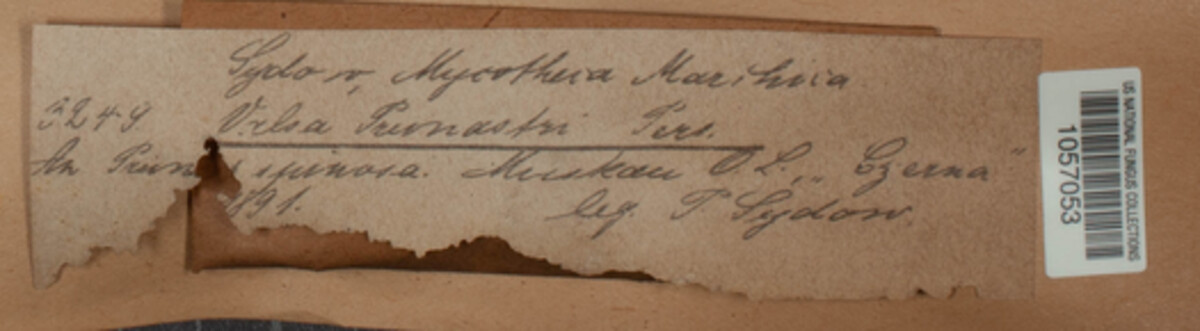 Sydow, Mycotheca Marchica
3249 Valsa Prunastri Pers.
An Prunus spinosa. Muskau O. L., „Czerna"
1891. leg. P. Sydow.
US NATIONAL FUNGUS COLLECTIONS
1057053